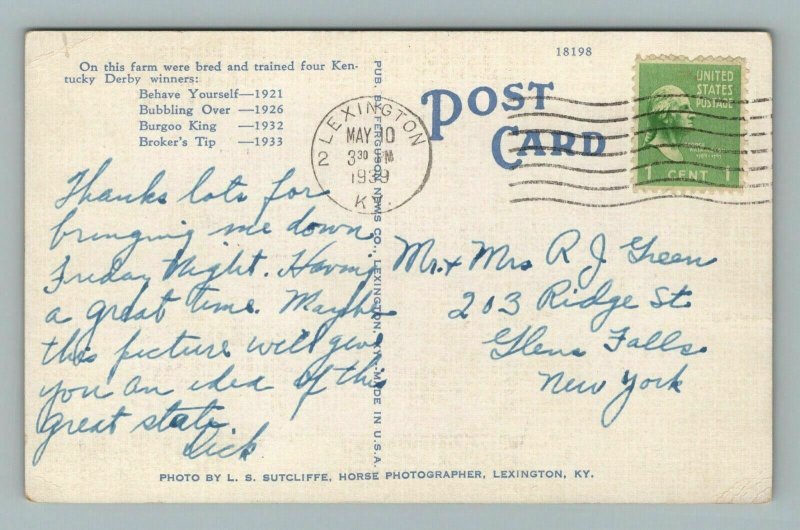 18198
On this farm were bred and trained four Ken-
tucky Derby winners:
Behave Yourself—1921
Bubbling Over —1926
Burgoo King —1932
Broker's Tip —1933
POST
CARD
UNITED
STATES
POSTAGE
1 CENT 1
LEXINGTON
2
MAY 10
3 30 PM
1939
KY.
PUB. BY FERGUSON NEWS CO., LEXINGTON, KY.—MADE IN U.S.A.
Thanks lots for
bringing me down
Friday Night. Having
a great time. Maybe
this picture will give
you an idea of this
great state.
Dick
Mr. + Mrs R J Green
203 Ridge St
Glens Falls
New York
PHOTO BY L. S. SUTCLIFFE, HORSE PHOTOGRAPHER, LEXINGTON, KY.